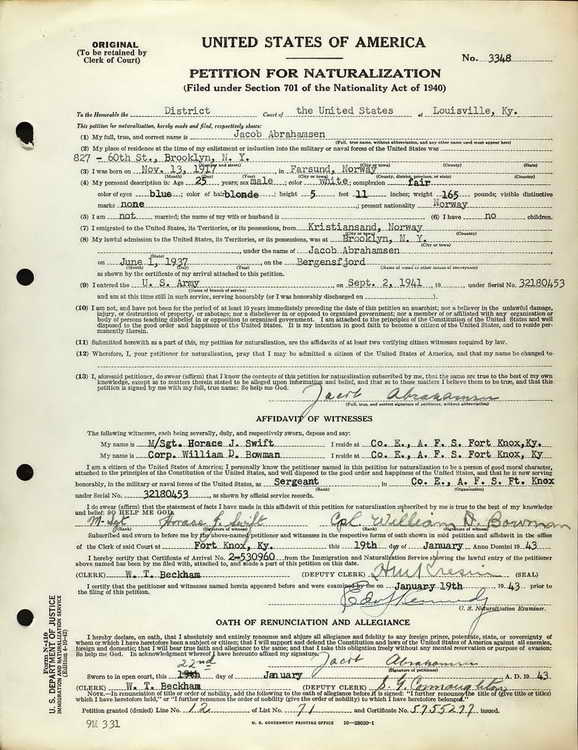 ORIGINAL
(To be retained by
Clerk of Court)
UNITED STATES OF AMERICA
No. 3348
PETITION FOR NATURALIZATION
(Filed under Section 701 of the Nationality Act of 1940)
To the Honorable the District Court of the United States at Louisville, Ky.
This petition for naturalization, hereby made and filed, respectfully shows:
(1) My full, true, and correct name is Jacob Abrahamsen
(Full, true name, without abbreviation, and any other name which has been used, must appear here)
(2) My place of residence at the time of my enlistment or induction into the military or naval forces of the United States was
827 - 60th St., Brooklyn, N. Y.
(3) I was born on Nov. 13, 1917 in Farsund, Norway
(4) My personal description is: Age 25 years; sex male; color white; complexion fair
color of eyes blue; color of hair blonde; height 5 feet 11 inches; weight 165 pounds; visible distinctive
marks none; present nationality Norway
(5) I am not married; the name of my wife or husband is (6) I have no children.
(7) I emigrated to the United States, its Territories, or its possessions, from Kristiansand, Norway
(8) My lawful admission to the United States, its Territories, or its possessions, was at Brooklyn, N. Y.
under the name of Jacob Abrahamsen
on June 1, 1937 on the Bergensfjord
(Month) (Day) (Year) (Name of vessel or other means of conveyance)
as shown by the certificate of my arrival attached to this petition.
(9) I entered the U. S. Army on Sept. 2, 1941, 19 under Serial No. 32180453
(Name of branch of service)
and am at this time still in such service, serving honorably (or I was honorably discharged on )
(10) I am not, and have not been for the period of at least 10 years immediately preceding the date of this petition an anarchist; nor a believer in the unlawful damage,
injury, or destruction of property, or sabotage; nor a disbeliever in or opposed to organized government; nor a member of or affiliated with any organization or
body of persons teaching disbelief in or opposition to organized government. I am attached to the principles of the Constitution of the United States and well
disposed to the good order and happiness of the United States. It is my intention in good faith to become a citizen of the United States, and to reside per-
manently therein.
(11) Submitted herewith as a part of this, my petition for naturalization, are the affidavits of at least two verifying citizen witnesses required by law.
(12) Wherefore, I, your petitioner for naturalization, pray that I may be admitted a citizen of the United States of America, and that my name be changed to
(13) I, aforesaid petitioner, do swear (affirm) that I know the contents of this petition for naturalization subscribed by me, that the same are true to the best of my own
knowledge, except as to matters therein stated to be alleged upon information and belief, and that as to those matters I believe them to be true, and that this
petition is signed by me with my full, true name: So help me God.
Jacob Abrahamsen
(Full, true, and correct signature of petitioner, without abbreviation)
AFFIDAVIT OF WITNESSES
The following witnesses, each being severally, duly, and respectively sworn, depose and say:
My name is M/Sgt. Horace J. Swift I reside at Co. E., A. F. S. Fort Knox,Ky.
My name is Corp. William D. Bowman I reside at Co. E., A. F. S. Fort Knox, Ky
I am a citizen of the United States of America; I personally know the petitioner named in this petition for naturalization to be a person of good moral character,
attached to the principles of the Constitution of the United States, and well disposed to the good order and happiness of the United States, and that he is now serving
honorably, in the military or naval forces of the United States as Sergeant in Co. E., A. F. S. Ft. Knox
(Rank) (Organization)
under Serial No. 32180453, as shown by official service records.
I do swear (affirm) that the statements of facts I have made in this affidavit of this petition for naturalization subscribed by me is true to the best of my knowledge
and belief: SO HELP ME GOD.
M Sgt Horace J. Swift Cpl William D. Bowman
Subscribed and sworn to before me by the above-named petitioner and witnesses in the respective forms of oath shown in said petition and affidavit in the office
of the Clerk of said Court at Fort Knox, Ky. this 19th day of January, Anno Domini 19 43
I hereby certify that Certificate of Arrival No. 2-530960 from the Immigration and Naturalization Service showing the lawful entry of the petitioner
above named has been by me filed with, attached to, and made a part of this petition on this date.
(CLERK) W. T. Beckham (DEPUTY CLERK) (SEAL)
I certify that the petitioner and witnesses named herein appeared before and were examined on January 19th, 19 43 prior to
the filing of this petition.
U. S. Naturalization Examiner.
OATH OF RENUNCIATION AND ALLEGIANCE
I hereby declare, on oath, that I absolutely and entirely renounce and abjure all allegiance and fidelity to any foreign prince, potentate, state, or sovereignty of
whom or which I have heretofore been a subject or citizen; that I will support and defend the Constitution and laws of the United States of America against all enemies,
foreign and domestic; that I will bear true faith and allegiance to the same; and that I take this obligation freely without any mental reservation or purpose of evasion:
So help me God. In acknowledgment whereof I have hereunto affixed my signature:
Jacob Abrahamsen
(Signature of petitioner)
22nd
Sworn to in open court, this 19th day of January A. D. 19 43
(CLERK) W. T. Beckham (DEPUTY CLERK)
Note.—In renunciation of title or order of nobility, add the following to the oath of allegiance before it is signed: "I further renounce the title of (give title or titles)
which I have heretofore held," or "I further renounce the order of nobility (give the order of nobility) to which I have heretofore belonged."
Petition granted (denied) Line No. 12 of List No. 71 and Certificate No. 5755277 issued.
U. S. GOVERNMENT PRINTING OFFICE 16-28630-1
Form N-410
U. S. DEPARTMENT OF JUSTICE
IMMIGRATION AND NATURALIZATION SERVICE
(Edition 4-10-42)